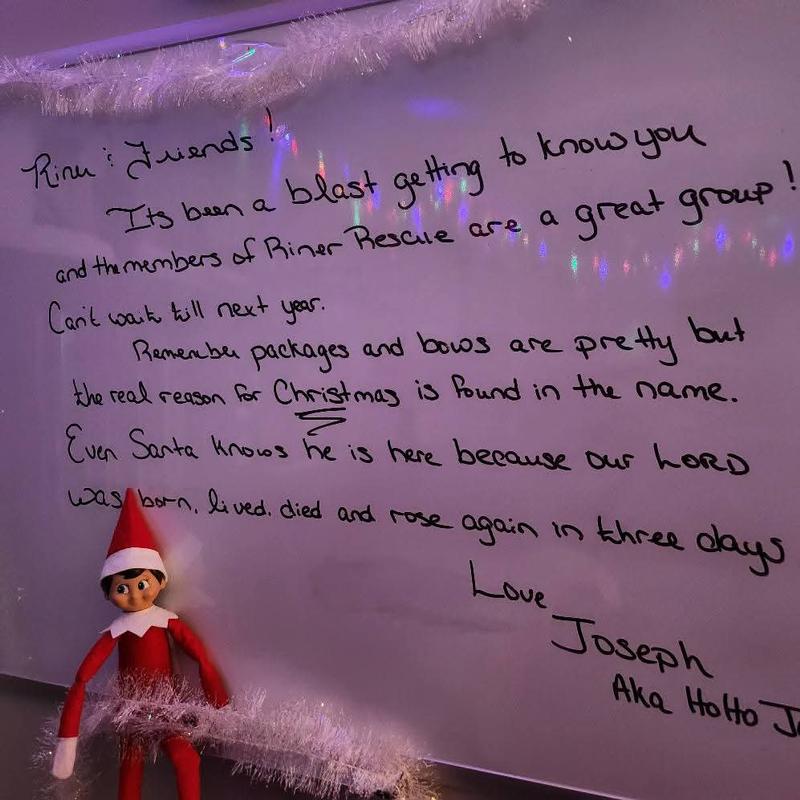 Riner & Friends!
Its been a blast getting to know you
and the members of Riner Rescue are a great group!
Can't wait till next year.
Remember packages and bows are pretty but
the real reason for Christmas is found in the name.
Even Santa knows he is here because our LORD
was born, lived, died and rose again in three days
Love
Joseph
Aka HoHo